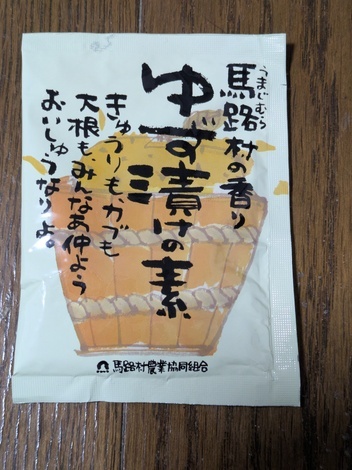 うまじむら
馬路村の香り
ゆず漬けの素
きゅうりも、カブも
大根も、みんなあ仲よう
おいしゅうなりよ。
馬路村農業協同組合